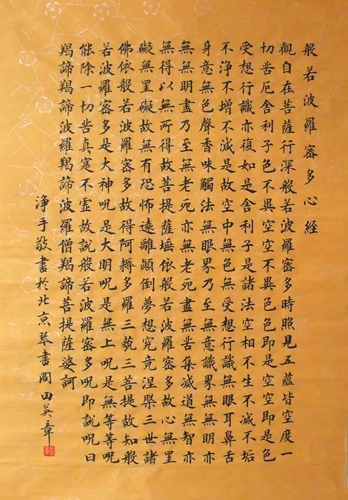 般若波羅蜜多心經
觀自在菩薩行深般若波羅蜜多時照見五蘊皆空度一
切苦厄舍利子色不異空空不異色色即是空空即是色
受想行識亦復如是舍利子是諸法空相不生不滅不垢
不淨不增不減是故空中無色無受想行識無眼耳鼻舌
身意無色聲香味觸法無眼界乃至無意識界無無明亦
無無明盡乃至無老死亦無老死盡無苦集滅道無智亦
無得以無所得故菩提薩埵依般若波羅蜜多故心無罣
礙無罣礙故無有恐怖遠離顛倒夢想究竟涅槃三世諸
佛依般若波羅蜜多故得阿耨多羅三藐三菩提故知般
若波羅蜜多是大神呪是大明呪是無上呪是無等等呪
能除一切苦真寔不虛故說般若波羅蜜多呪即說呪曰
羯諦羯諦波羅羯諦波羅僧羯諦菩提薩婆訶
淨手敬書於北京琴書閣田英章